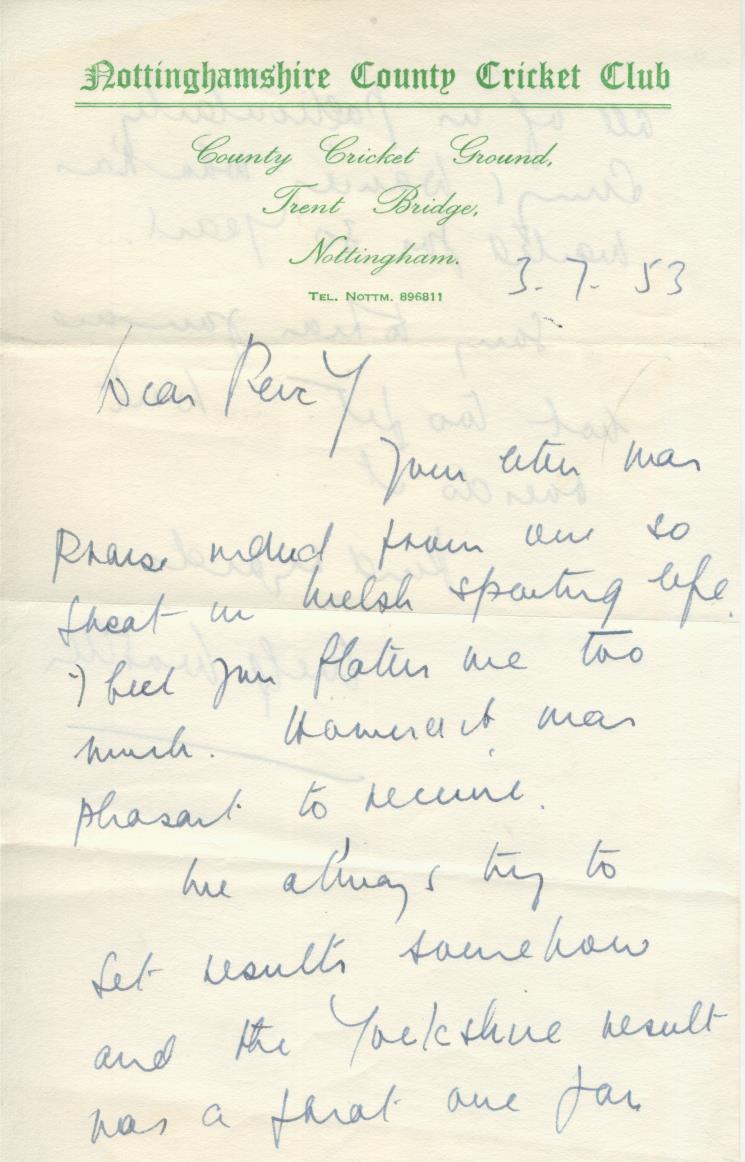 Nottinghamshire County Cricket Club
County Cricket Ground,
Trent Bridge,
Nottingham.
TEL. NOTTM. 896811
3. 7. 53
Dear Percy
Your letter was
praise indeed from one so
great in Welsh sporting life.
I feel you flatter me too
much. However it was
pleasant to receive.
We always try to
get results somehow
and the Yorkshire result
was a great one for